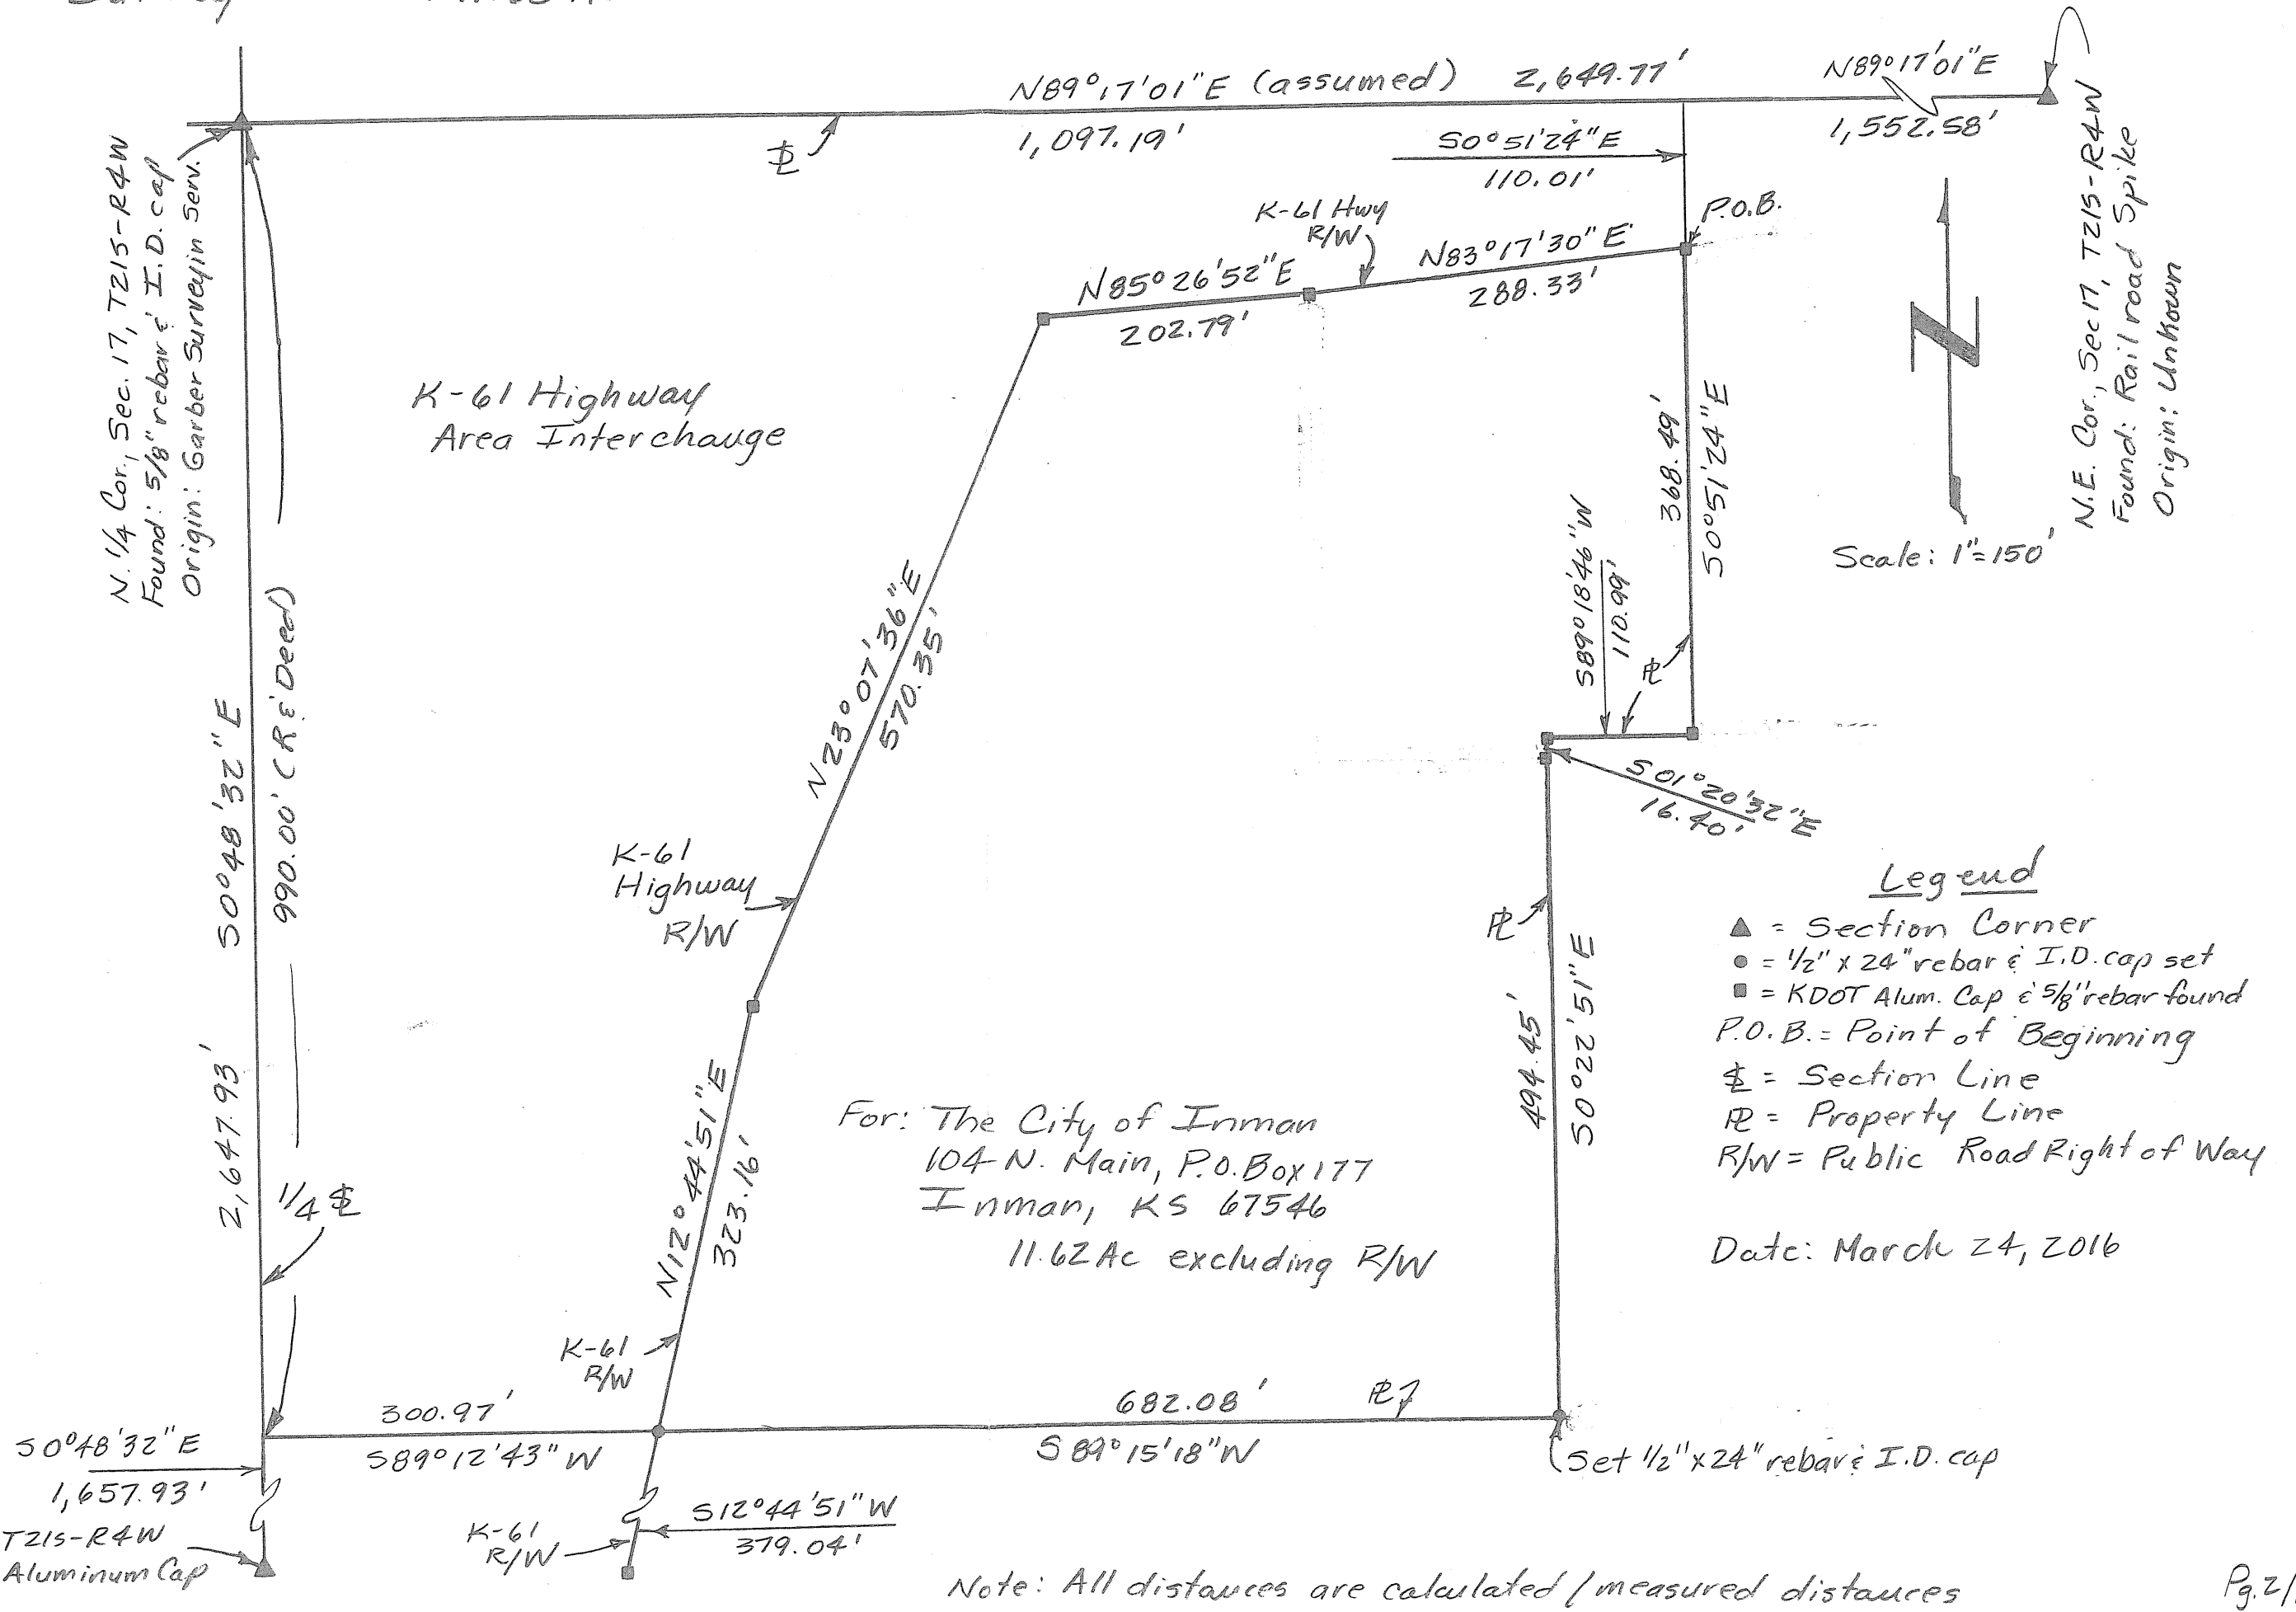 N89°17'01"E (assumed) 2,649.77'
N89°17'01"E
1,097.19'
1,552.58'
S0°51'24"E
110.01'
P.O.B.
K-61 Hwy
R/W
N83°17'30"E
288.33'
N85°26'52"E
202.79'
N. 1/4 Cor., Sec. 17, T21S-R4W
Found: 5/8" rebar & I.D. cap
Origin: Garber Surveyin Serv.
N.E. Cor., Sec 17, T21S-R4W
Found: Railroad Spike
Origin: Unkown
K-61 Highway
Area Interchange
368.49'
S0°51'24"E
N
Scale: 1"=150'
S89°18'46"W
110.99'
PL
N23°07'36"E
570.35'
S0°48'32"E 2,647.93'
990.00' (R & Deed)
S01°20'32"E
16.40'
K-61
Highway
R/W
PL
494.45'
S0°22'51"E
Legend
▲ = Section Corner
● = 1/2" x 24" rebar & I.D. cap set
■ = KDOT Alum. Cap & 5/8" rebar found
P.O.B. = Point of Beginning
SL = Section Line
PL = Property Line
R/W = Public Road Right of Way
Date: March 24, 2016
N12°44'51"E
323.16'
For: The City of Inman
104 N. Main, P.O. Box 177
Inman, KS 67546
11.62 Ac excluding R/W
1/4 SL
K-61
R/W
300.97'
S89°12'43"W
682.08'
PL
S89°15'18"W
Set 1/2" x 24" rebar & I.D. cap
S0°48'32"E
1,657.93'
T21S-R4W
Aluminum Cap
K-61
R/W
S12°44'51"W
379.04'
Note: All distances are calculated / measured distances
Pg. 2/